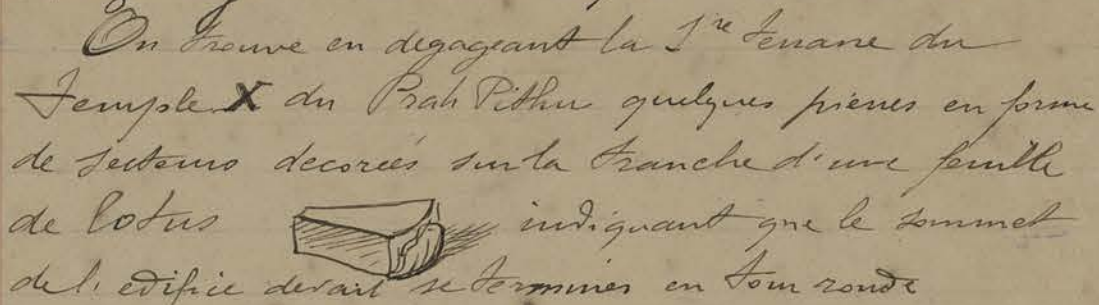 On trouve en dégageant la 1re terrasse du
Temple X du Prah Pithu quelques pierres en forme
de secteurs décorées sur la tranche d'une feuille
de lotus indiquant que le sommet
de l'édifice devait se terminer en tour ronde